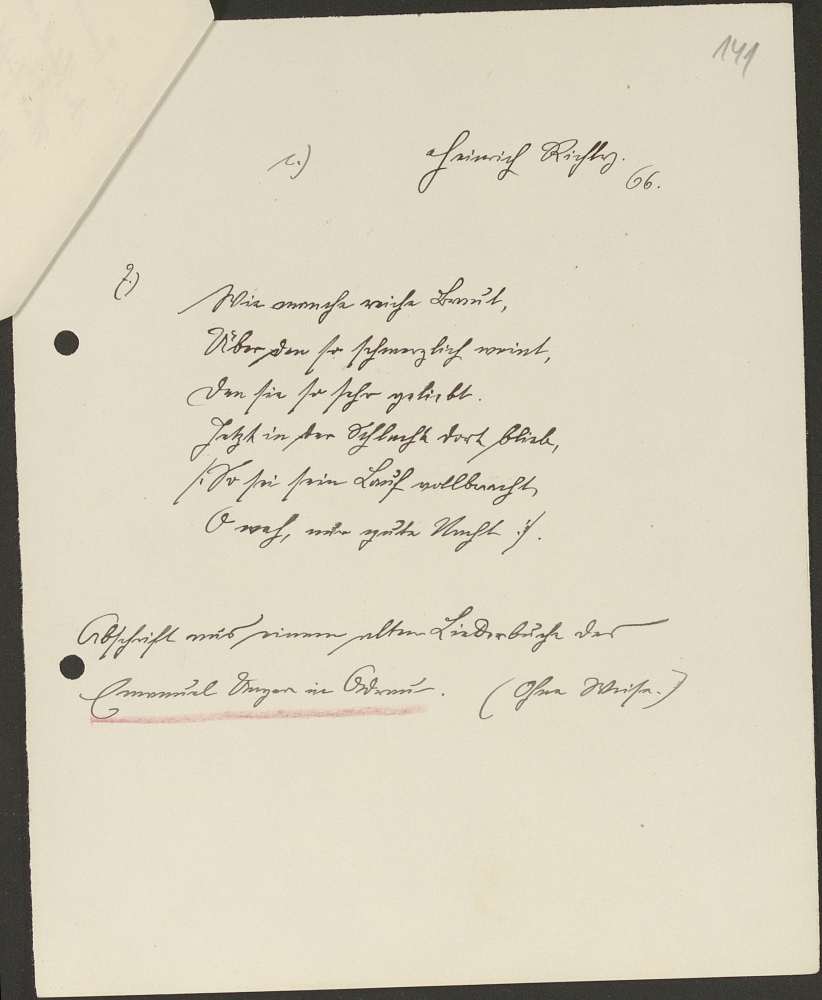 141
c.) Heinrich Richtg.
66.
7.)
Wie manche reiche Braut,
Über den so schmerzlich weint,
Den sie so sehr geliebt.
Jetzt in der Schlacht dort blieb,
/: So sei sein Lauf vollbracht,
O weh, nur gute Nacht :/.
Abschrift aus einem alten Liederbuche des
Emanuel Unger in Odrau. (Ohne Weise.)